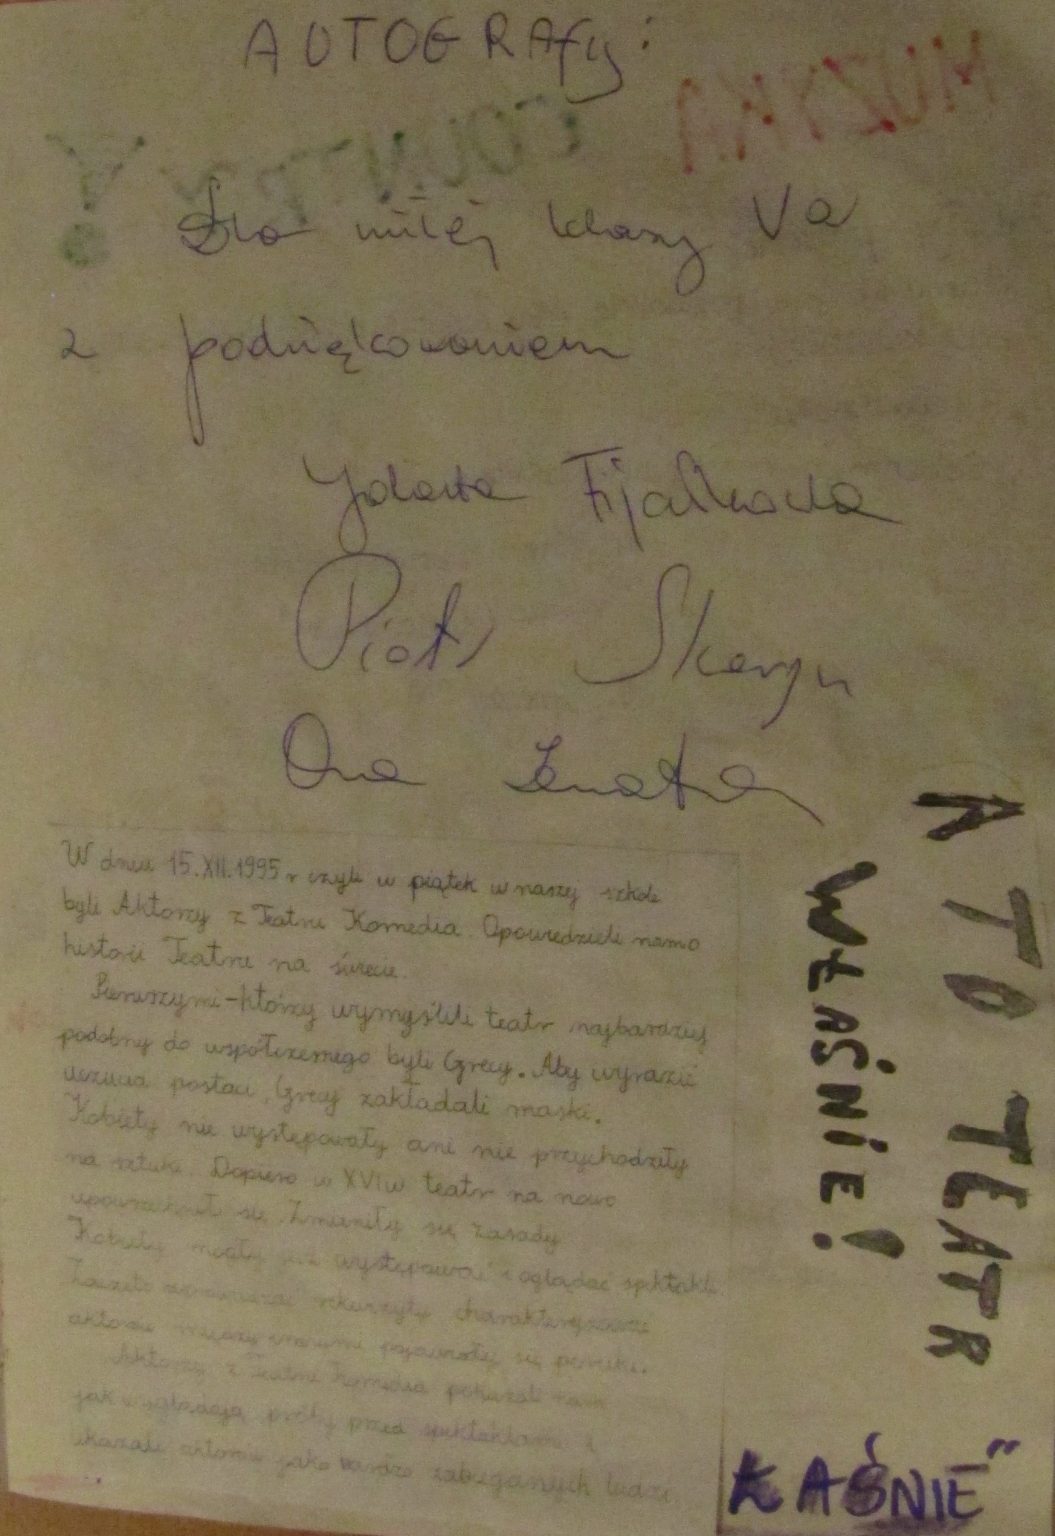 AUTOGRAFy:
MUZYKA
COUNTRY!
Dla miłej klasy Va
z podziękowaniem
Jolanta Fijałkowska
Piotr Skarga
W dniu 15.XII.1995 r czyli w piątek w naszej szkole
byli Aktorzy z Teatru Komedia. Opowiedzieli nam o
historii Teatru na świecie.
Pierwszymi-którzy wymyślili teatr najbardziej
podobny do współczesnego byli Grecy. Aby wyrazić
uczucia postaci, Grecy zakładali maski.
Kobiety nie występowały ani nie przychodziły
na sztuki. Dopiero w XVI w teatr na nowo
upowszechnił się. Zmieniły się zasady
Kobiety mogły już występować i oglądać spektakle
Zaczęto charakteryzować
aktorów między innymi pojawiały się peruki.
Aktorzy z Teatru Komedia pokazali nam
jak wyglądają próby przed spektaklami i
ukazali aktorów jako bardzo zabieganych ludzi
A TO TEATR
WŁAŚNIE!
ŁAŚNIE"